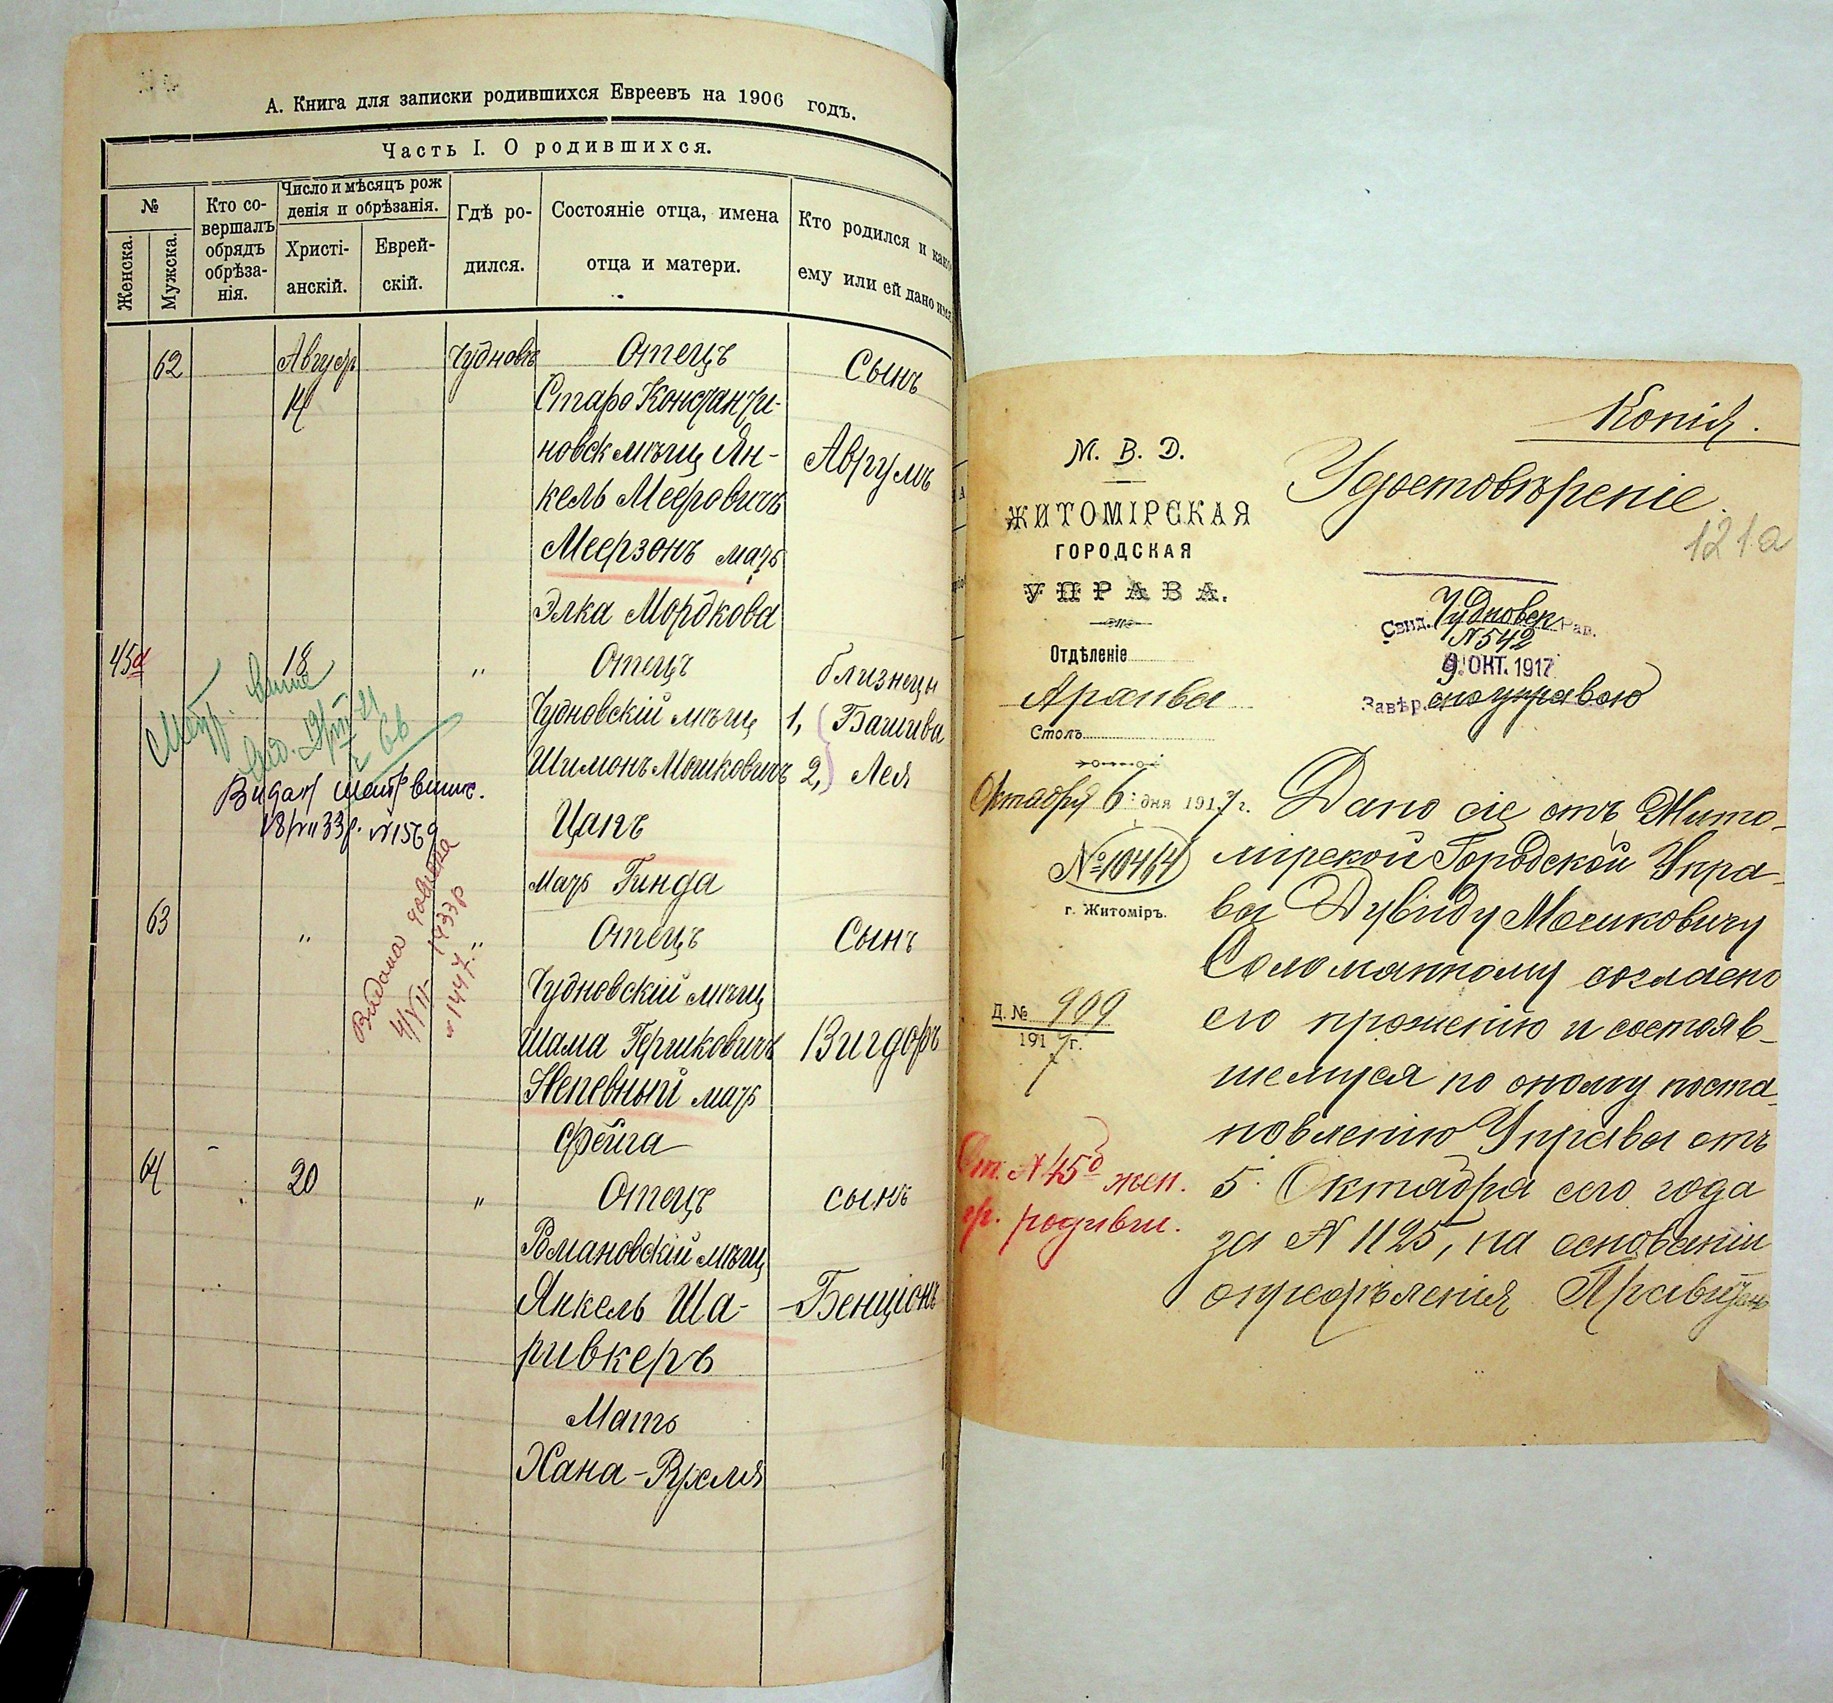 А. Книга для записки родившихся Евреевъ на 1906 годъ.
Часть I. О родившихся.
№
Женска.
Мужска.
Кто со-
вершалъ
обрядъ
обрѣза-
нія.
Число и мѣсяцъ рож
денія и обрѣзанія.
Христі-
анскій.
Еврей-
скій.
Гдѣ ро-
дился.
Состояніе отца, имена
отца и матери.
Кто родился и како
ему или ей дано имя
62
Август
14
Чудновъ
Отецъ
Старо Константи-
новск мѣщ Ян-
кель Мееровичъ
Меерзонъ мать
Элка Мордкова
Сынъ
Аврумъ
45а
18
"
Отецъ
Чудновскій мѣщ
Шимонъ Мошковичъ
Цапъ
мать Гинда
близнецы
1, Башива
2, Лея
Метр.
Видан метр
18/VII 33р. №1569
Видана
4/VII- 1933р
№ 1447.
63
"
"
Отецъ
Чудновскій мѣщ
Шама Гершковичъ
Непевный мать
Фейга
Сынъ
Вигдоръ
64
20
"
Отецъ
Романовскій мѣщ
Янкель Ша-
ривкеръ
Мать
Хана-Рухля
сынъ
Бенціонъ
Копія.
Удостовѣреніе.
121а
М. В. Д.
ЖИТОМІРСКАЯ
ГОРОДСКАЯ
УПРАВА.
Отдѣленіе
Столъ
Октября 6 дня 1917 г.
№ 10464
г. Житоміръ.
Д. № 909
1917 г.
Свид. Чудновск Рав.
№ 542
9 ОКТ. 1917
Завѣр.
Дано сіе отъ Жито-
мірской Городской Упра-
вы Дувиду Мошковичу
Соломянному согласно
его прошенію и состояв-
шемуся по оному поста-
новленію Управы отъ
5 Октября сего года
за № 1125, на основаніи
опредѣленія
Ст. № 45б жен.
гр. родивш.